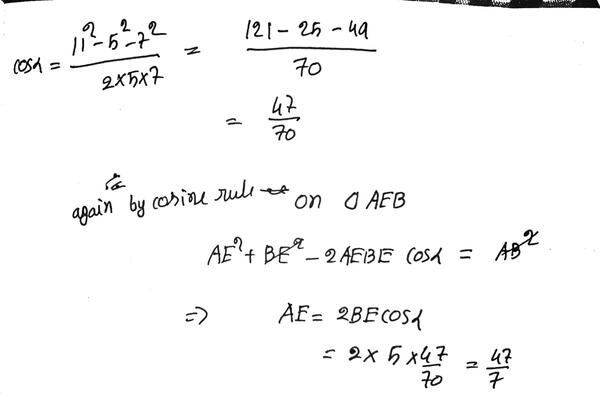 cosα = 11²-5²-7² / 2×5×7 = 121 - 25 - 49 / 70
= 47/70
again by cosine rule on △ AEB
AE² + BE² - 2AEBE cosα = AB²
⇒ AE = 2BE cosα
= 2 × 5 × 47/70 = 47/7